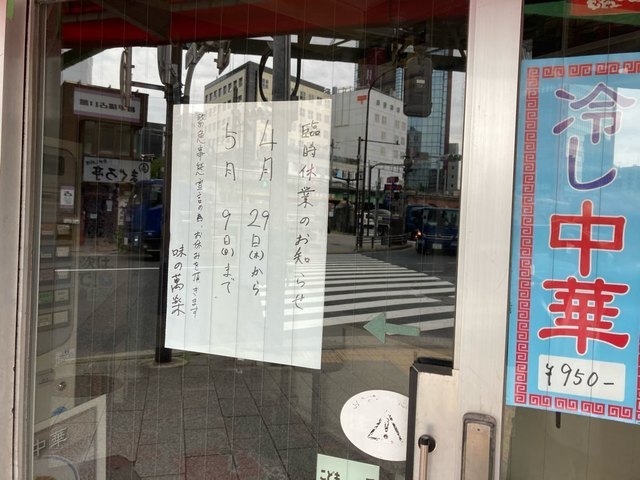 臨時休業のお知らせ
4月29日(木)から
5月9日(日)まで
緊急事態宣言の為、お休みを頂きます
味の萬楽
冷し中華
¥950-
まぐろ亭
中華